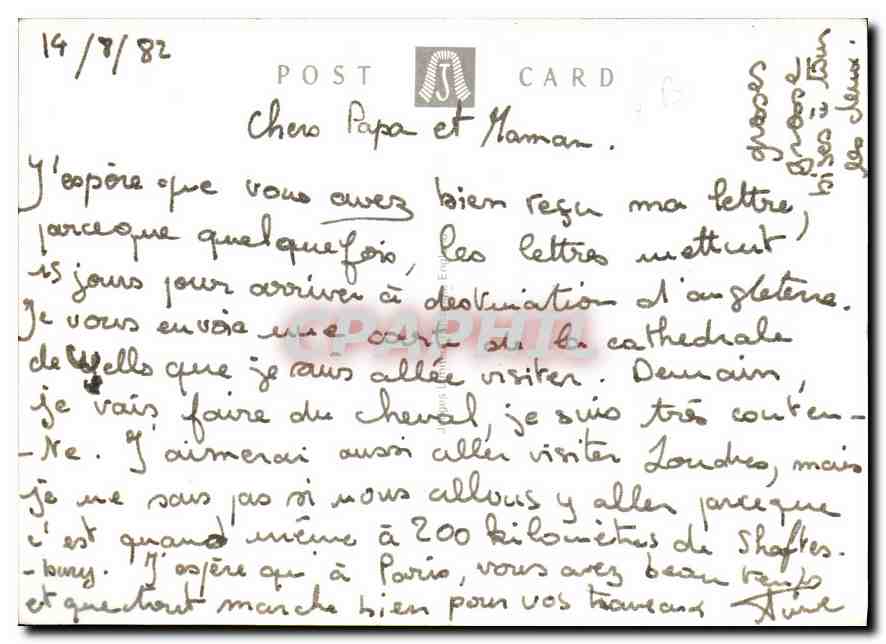 14/8/82
POST CARD
Chers Papa et Maman.
J'espère que vous avez bien reçu ma lettre,
parceque quelquefois, les lettres mettent
15 jours pour arriver à destination d'angleterre.
Je vous envoie une carte de la cathedrale
de Wells que je suis allée visiter. Demain,
je vais faire du cheval, je suis très conten-
-te. J'aimerai aussi aller visiter Londres, mais
je ne sais pas si nous allons y aller parceque
c'est quand même à 200 kilomètres de Shaftes-
-bury. J'espère qu'à Paris, vous avez beau temps
et que tout marche bien pour vos travaux
grosses
grosse
bises à tous
les deux.
CPAPHIL